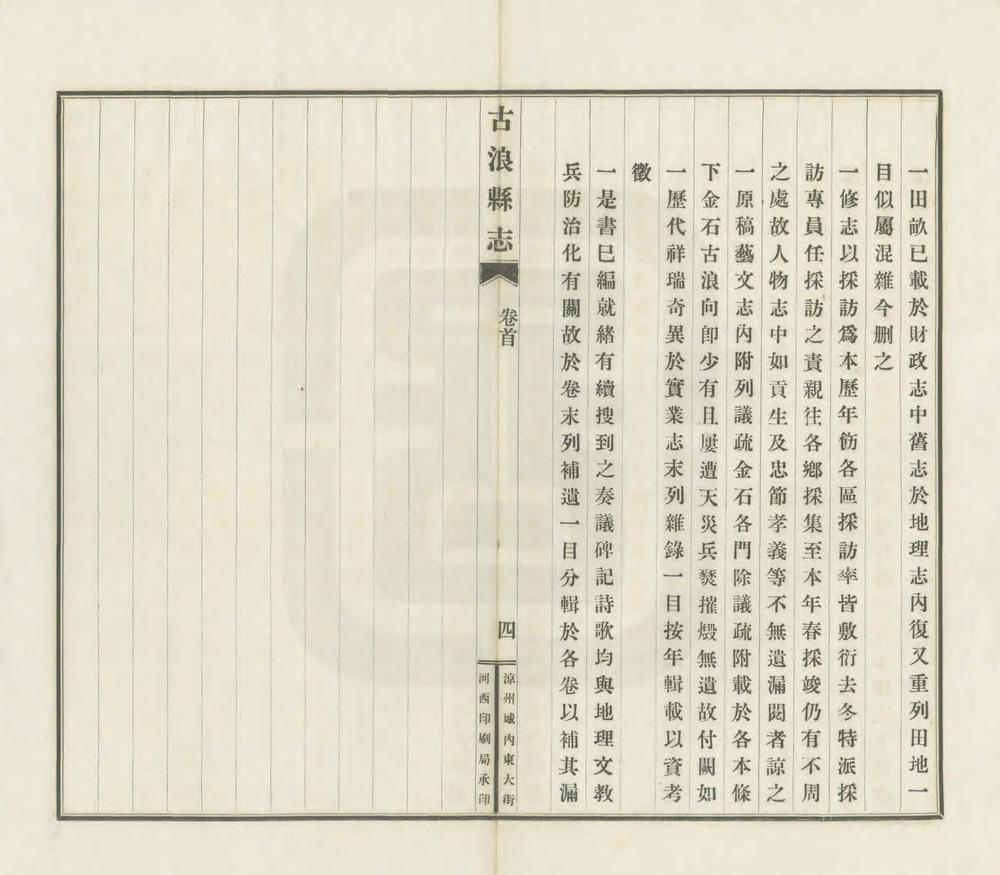 一田畝已載於財政志中舊志於地理志內復又重列田地一
目似屬混雜今删之
一修志以採訪爲本歷年飭各區採訪率皆敷衍去冬特派採
訪專員任採訪之責親往各鄉採集至本年春採竣仍有不周
之處故人物志中如貢生及忠節孝義等不無遺漏閱者諒之
一原稿藝文志內附列議疏金石各門除議疏附載於各本條
下金石古浪向卽少有且屢遭天災兵燹摧燬無遺故付闕如
一歷代祥瑞奇異於實業志末列雜錄一目按年輯載以資考
徵
一是書巳編就緒有續搜到之奏議碑記詩歌均與地理文教
兵防治化有關故於卷末列補遺一目分輯於各卷以補其漏
古浪縣志
卷首
四
涼州城內東大街
河西印刷局承印